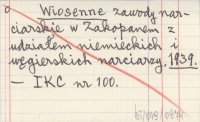 Wiosenne zawody nar-
ciarskie w Zakopanem z
udziałem niemieckich i
węgierskich narciarzy, 1939.
— IKC nr 100.